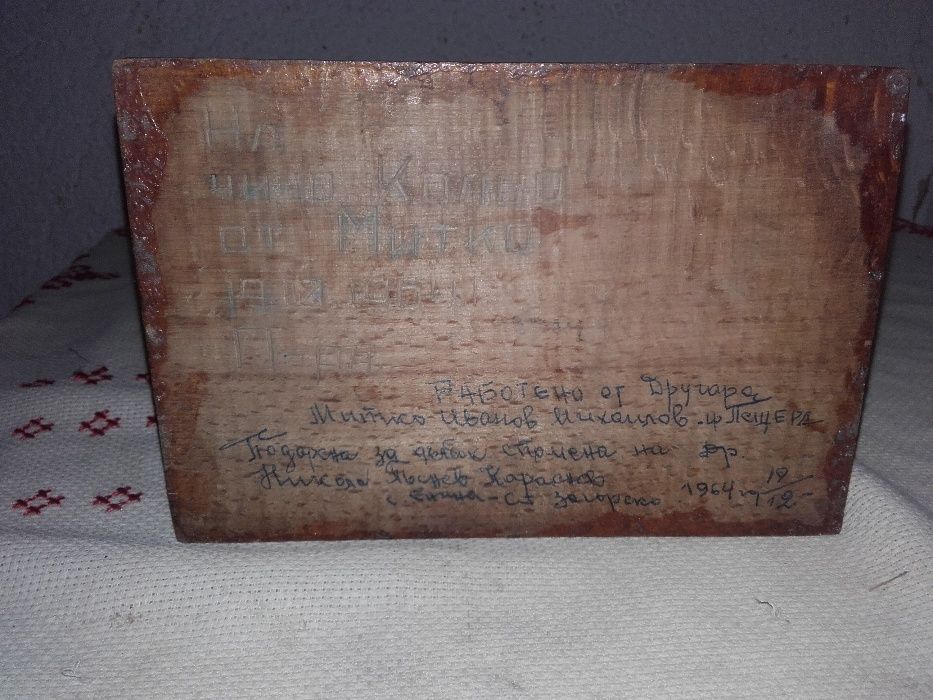 На
чичо Кольо
от Митко
1964
П-ра
РАБОТЕНО от Другаря
Митко Иванов Михайлов - гр Пещера
Подарена за дълак спомена на др.
Никола Танев Караонов
с Енина - Ст Загорско 1964 г 19/12